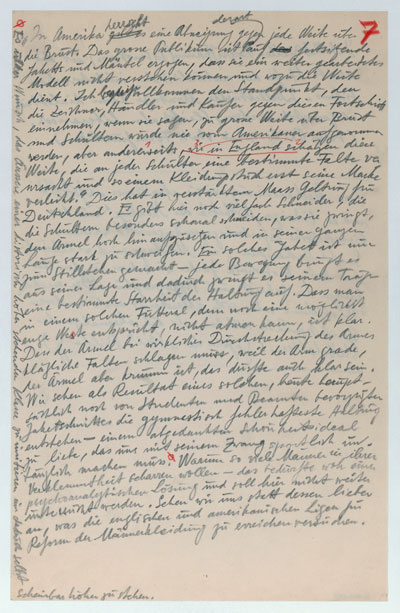 7
In Amerika herrscht eine Abneigung gegen jede Weite über
derart
die Brust. Das grosse Publikum ist auf festsitzende
Jaketts und Mäntel erzogen, dass sie ein weiter gearbeitetes
Modell nicht verstehen können und wozu die Weite
dient. Ich vollkommen den Standpunkt, den
die Zeichner, Händler und Käufer gegen diesen Fortschritt
einnehmen, wenn sie sagen, zu grosse Weite über Brust
und Schultern würde nie vom Amerikaner aufgenommen
werden, aber andererseits, wir in England schätzen diese
Weite, die an jeder Schulter eine bestimmte Falte ver
ursacht und so einem Kleidungsstück erst seine Marke
verleiht." Dies hat in verstärktem Maass Geltung für
Deutschland. Es gibt hier noch viel Schneider, die
die Schultern besonders schmal schneiden, was sie zwingt,
den Ärmel hoch hinaufzusetzen und in seiner ganzen
Länge stark zu Ein solches Jaket ist nur
zum Stillstehen gemacht – jede Bewegung bringt es
aus seiner Lage und dadurch zwingt es seinem Träger
eine bestimmte Starrheit der Haltung auf. Dass man
in einem solchen Futteral, dem noch eine möglichst
enge Weste entspricht, nicht atmen kann, ist klar.
Dass der Ärmel bei wirklicher Durchstreckung des Armes
klägliche Falten schlagen muss, weil der Arm grade,
der Ärmel aber krumm ist, das dürfte auch klar sein.
Wir sehen als Resultat eines solchen, heute haupt-
sächlich noch von Studenten und Beamten bevorzugten
Jaketschnittes die gymnastisch fehlerhafteste Haltung
entstehen – einem abgedankten Schönheitsideal
zu liebe, das uns mit seinem Zwang un-
tauglich machen muss. Warum so viele Männer in ihrer
Verklemmtheit beharren wollen – das bedürfte wohl einer
psychoanalytischen Lösung und soll hier nicht weiter
untersucht werden. Sehen wir uns statt dessen lieber
an, was die englischen und amerikanischen Ligen zur
Reform der Männerkleidung zu erreichen versuchen.
scheinbar höher zu stehen.